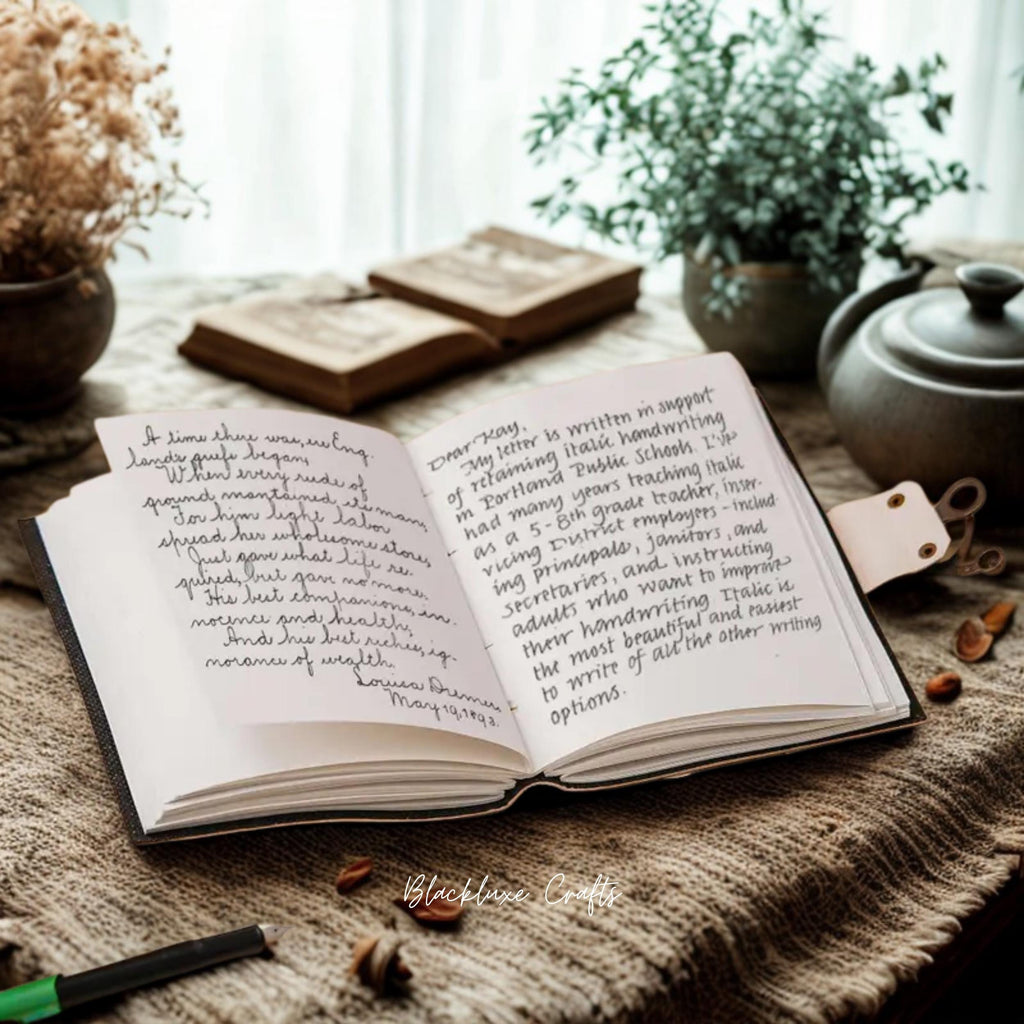 A time there was, ere Eng-
lands griefs began,
When every rude of
ground mantained its man,
For him light labor
spread her wholesome store,
Just gave what life re-
quired, but gave no more,
His best companions, in-
nocence and health,
And his best riches, ig-
norance of wealth.
Louisa
May 19, 1893.
Dear Kay,
My letter is written in support
of retaining italic handwriting
in Portland Public Schools. I've
had many years teaching italic
as a 5-8th grade teacher, inser-
vicing District employees - includ-
ing principals, janitors, and
secretaries, and instructing
adults who want to improve
their handwriting. Italic is
the most beautiful and easiest
to write of all the other writing
options.
Blackluxe Crafts